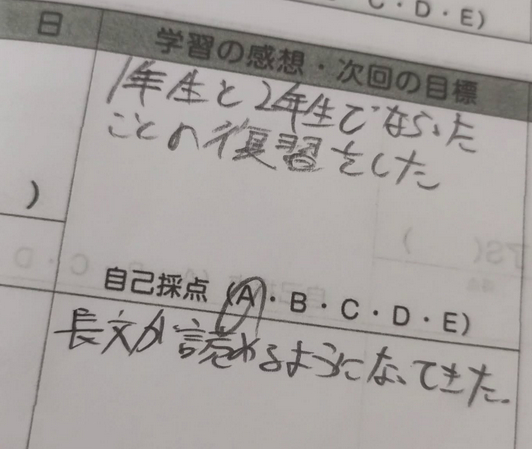 C・D・E)
日
学習の感想・次回の目標
1年生と2年生でならった
ことの復習をした
)
自己採点 (A・B・C・D・E)
長文が読めるようになってきた。